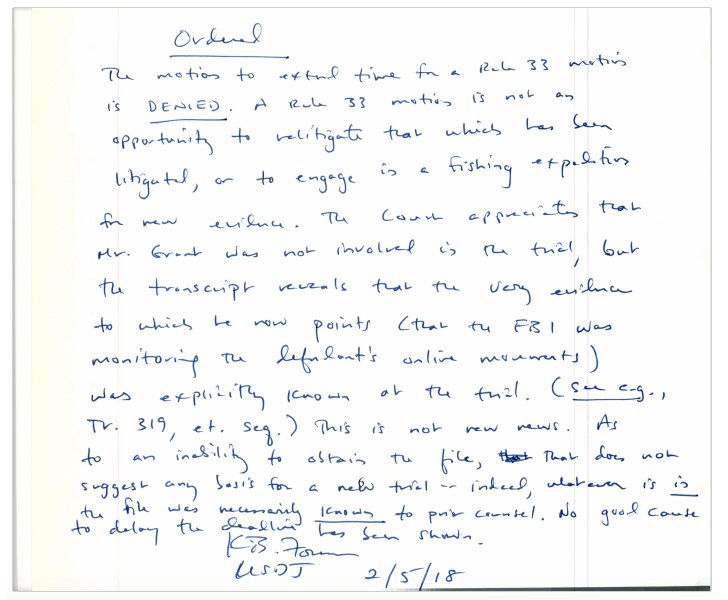 Ordered
The motion to extend time for a Rule 33 motion
is DENIED. A Rule 33 motion is not an
opportunity to relitigate that which has been
litigated, or to engage in a fishing expedition
for new evidence. The Court appreciates that
Mr. Grant was not involved in the trial, but
the transcript reveals that the very evidence
to which he now points (that the FBI was
monitoring the defendant's online movements)
was explicitly known at the trial. (See e.g.,
Tr. 319, et. seq.) This is not new news. As
to an inability to obtain the file, that does not
suggest any basis for a new trial -- indeed, whatever is in
the file was necessarily known to prior counsel. No good cause
to delay the deadline has been shown.
K.B. Forrest
USDJ 2/5/18